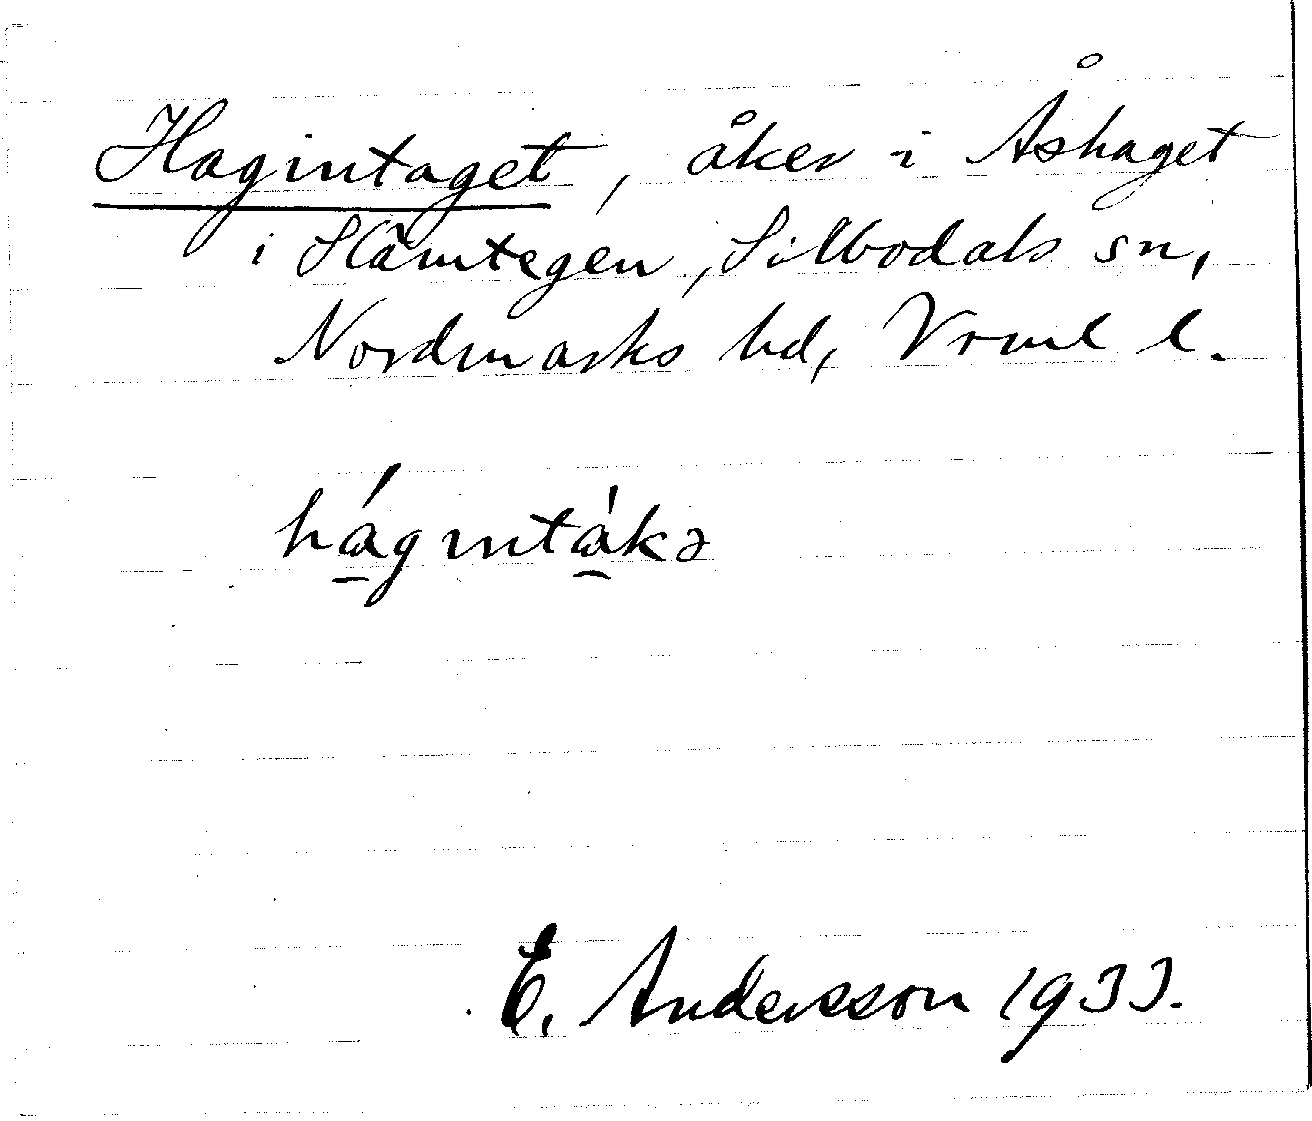 Hagintaget, åker i Åshaget
i Slämtegen, Silbodals sn,
Nordmarks hd, Vrml l.
hágıntákə
E. Andersson 1933.